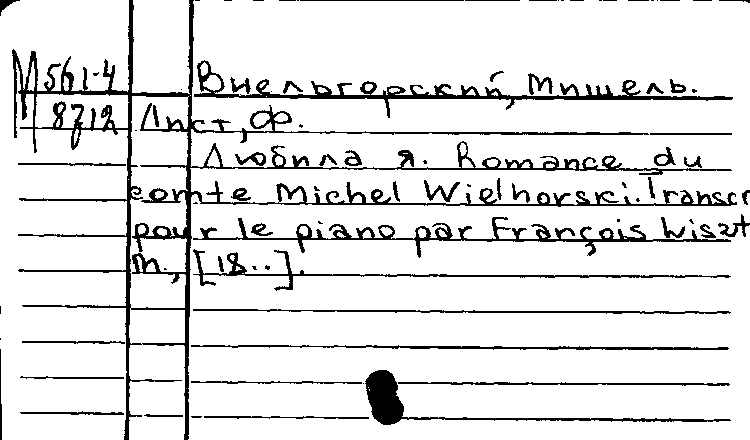 М 561-4 Виельгорский, Мишель.
8712 Лист, Ф.
Любила я. Romance du
comte Michel Wielhorski. Transcr
pour le piano par François Liszt
М., [18..].